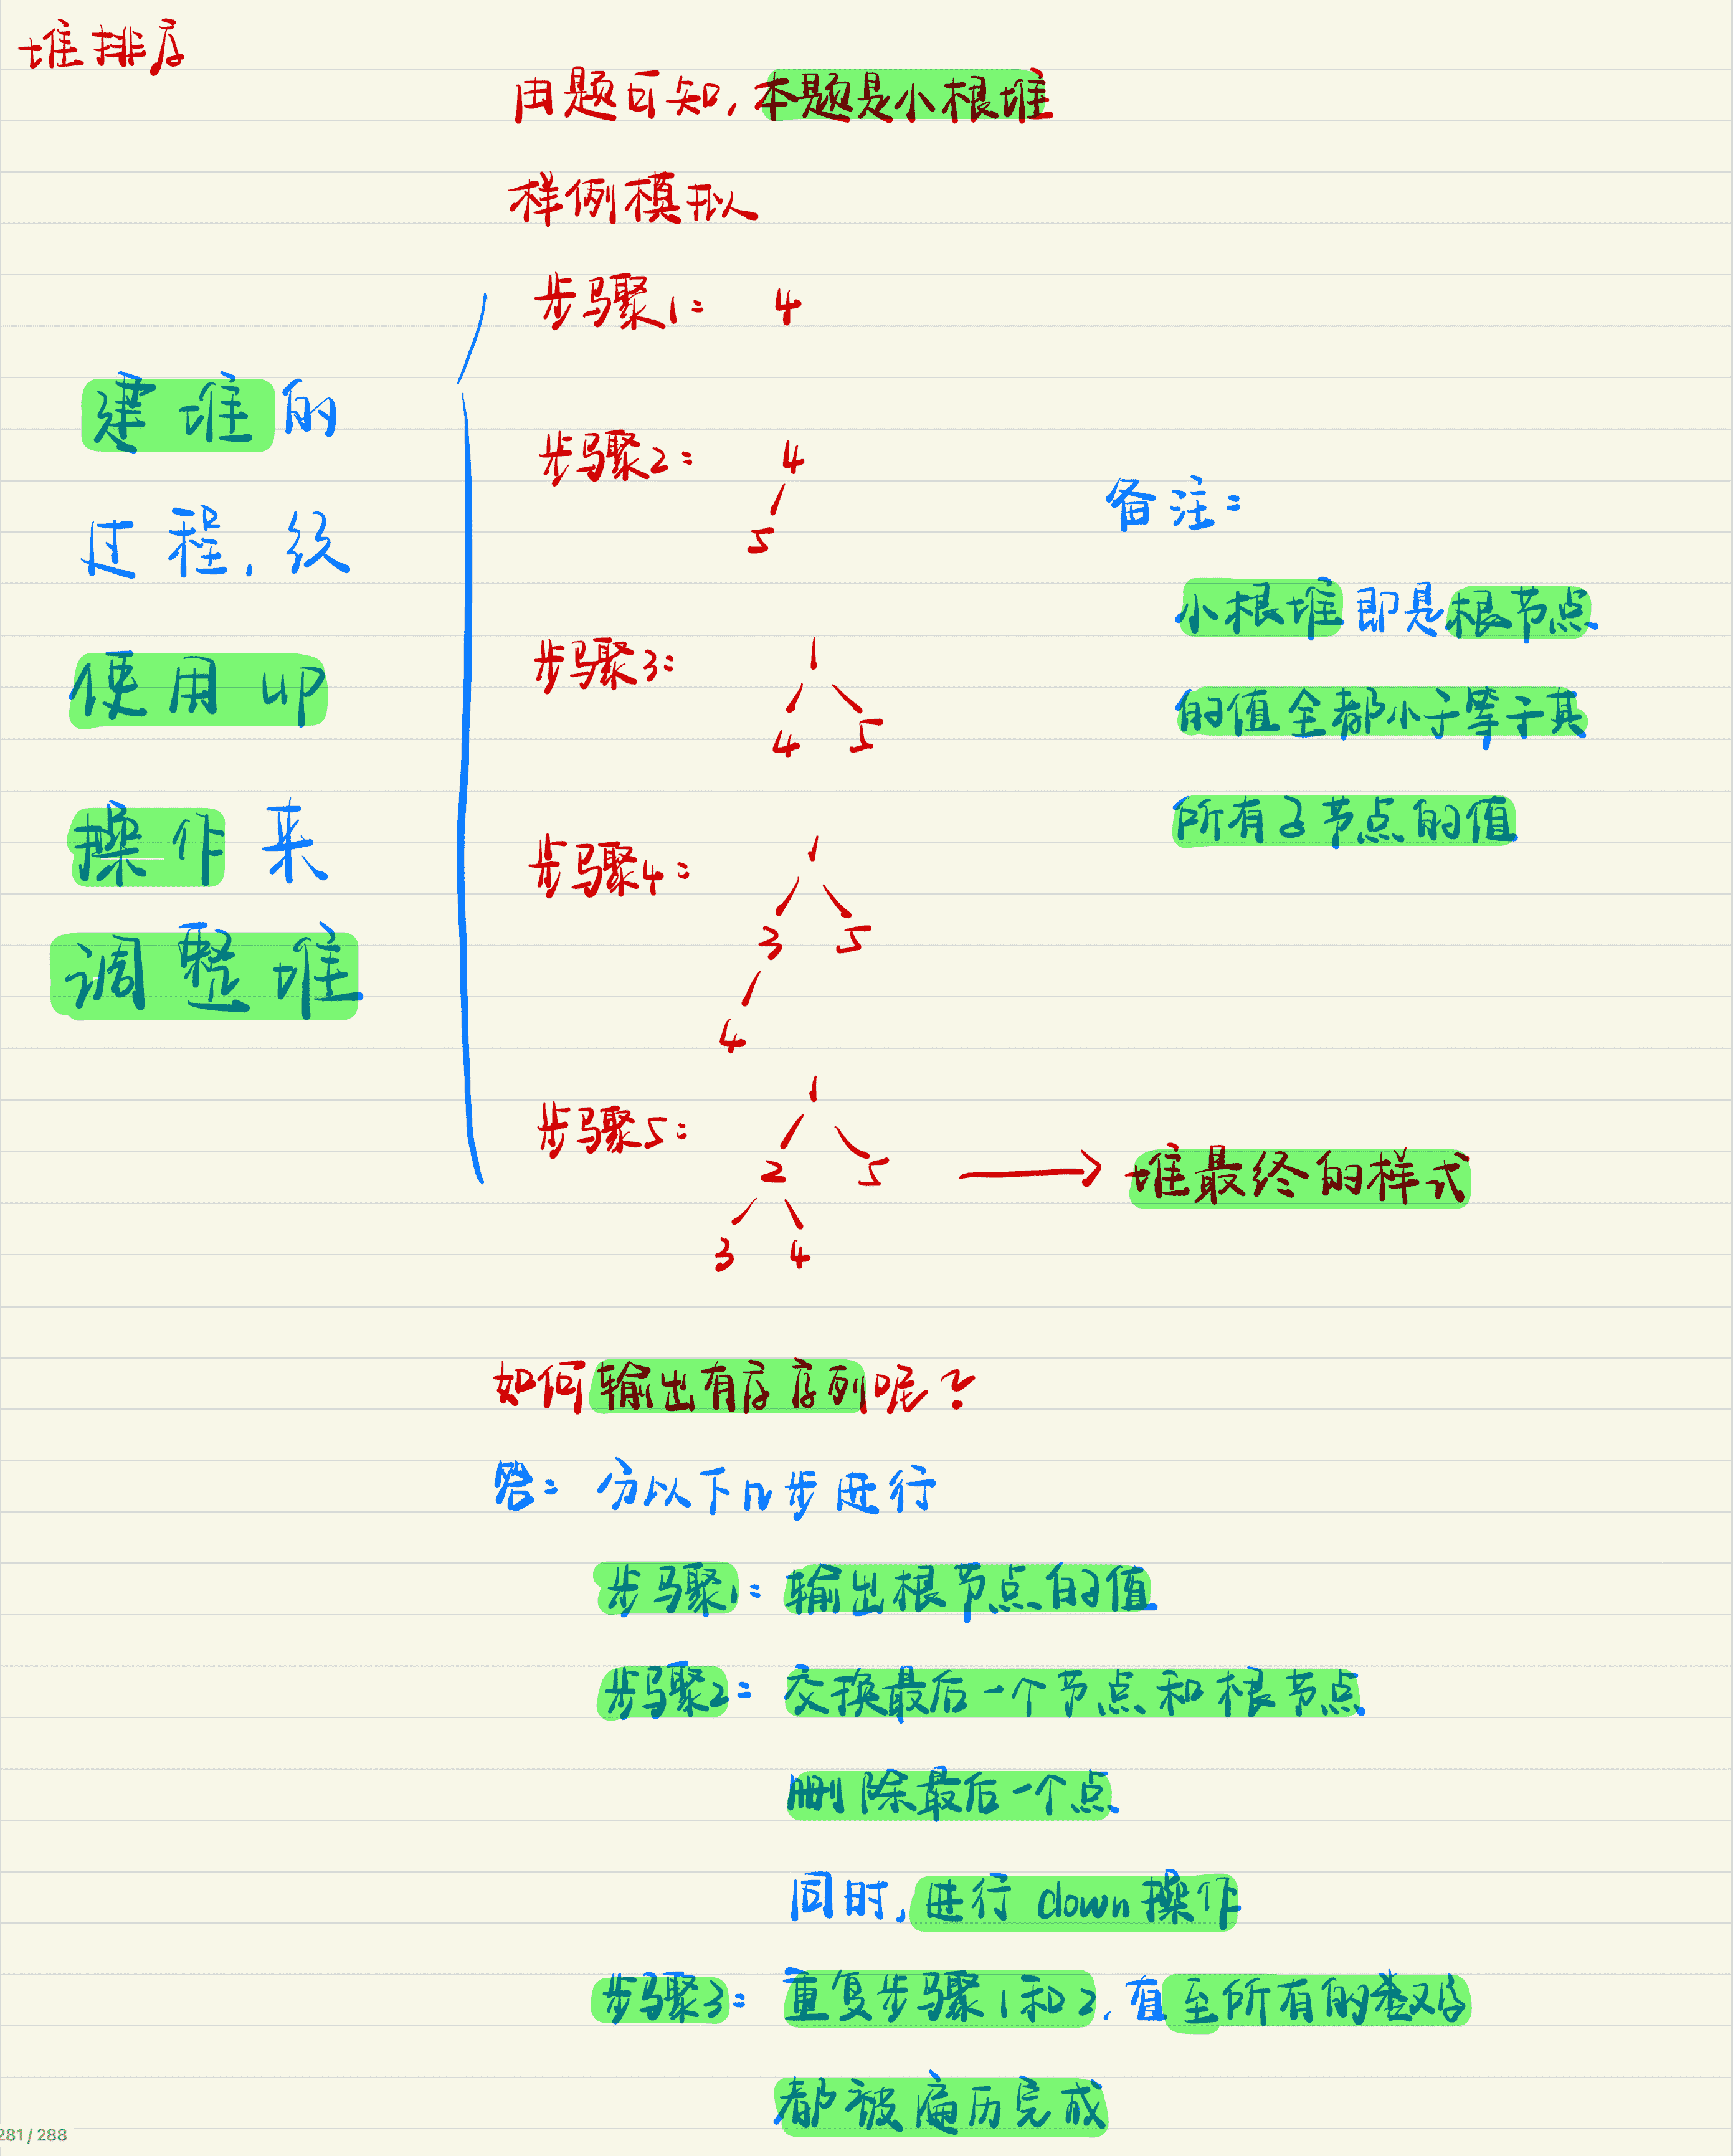 堆排序
由题可知,本题是小根堆
样例模拟
步骤1: 4
建堆的
过程,纹
使用 up
操作来
调整堆
步骤2: 4
5
步骤3: 1
4 5
步骤4: 1
3 5
4
步骤5: 1
2 5
3 4
堆最终的样式
备注:
小根堆即是根节点
的值全都小于等于其
所有子节点的值
如何输出有序序列呢?
答: 分以下几步进行
步骤1: 输出根节点的值
步骤2: 交换最后一个节点和根节点
删除最后一个点
同时,进行 down 操作
步骤3: 重复步骤1和2,直至所有的数字
都被遍历完成
281 / 288